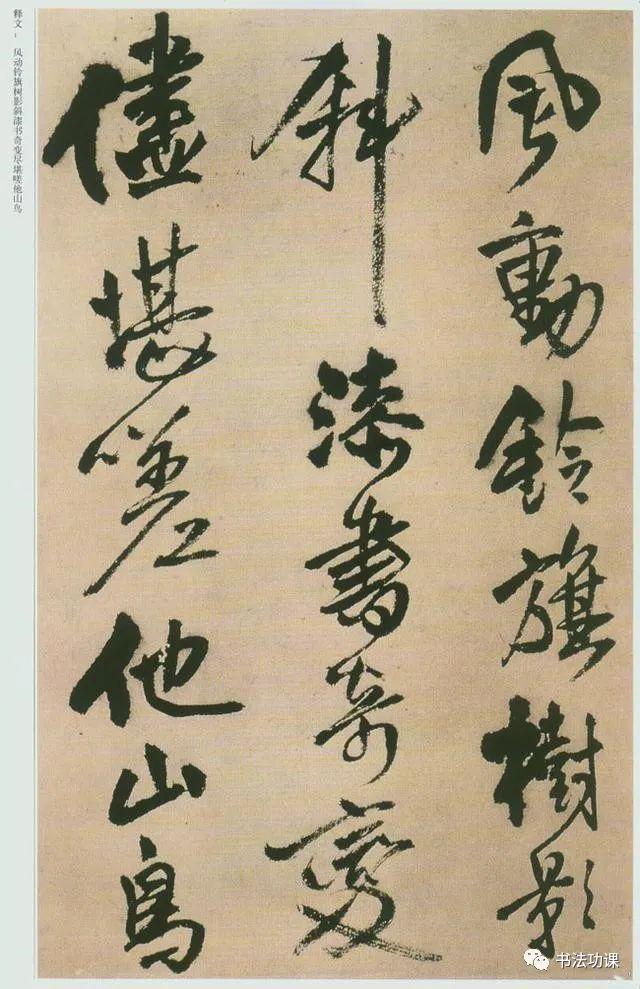 风动铃旗树影斜漆书奇变尽堪嗟他山鸟
釋文:
風動鈴旗樹影
斜漆書奇變
儘堪嗟他山鳥
书法功课